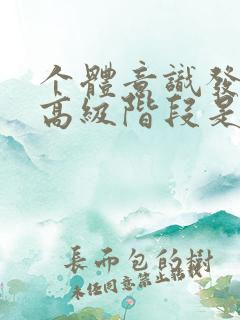 个體意識發
高級階段是
長而包的樹
未任同意禁止轉載